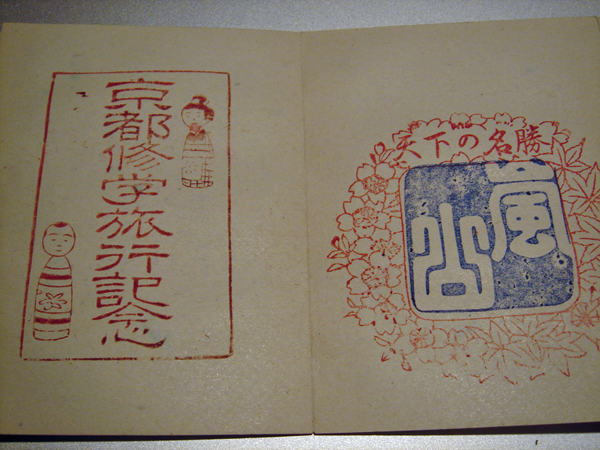 京都修学旅行記念
天下の名勝
嵐山